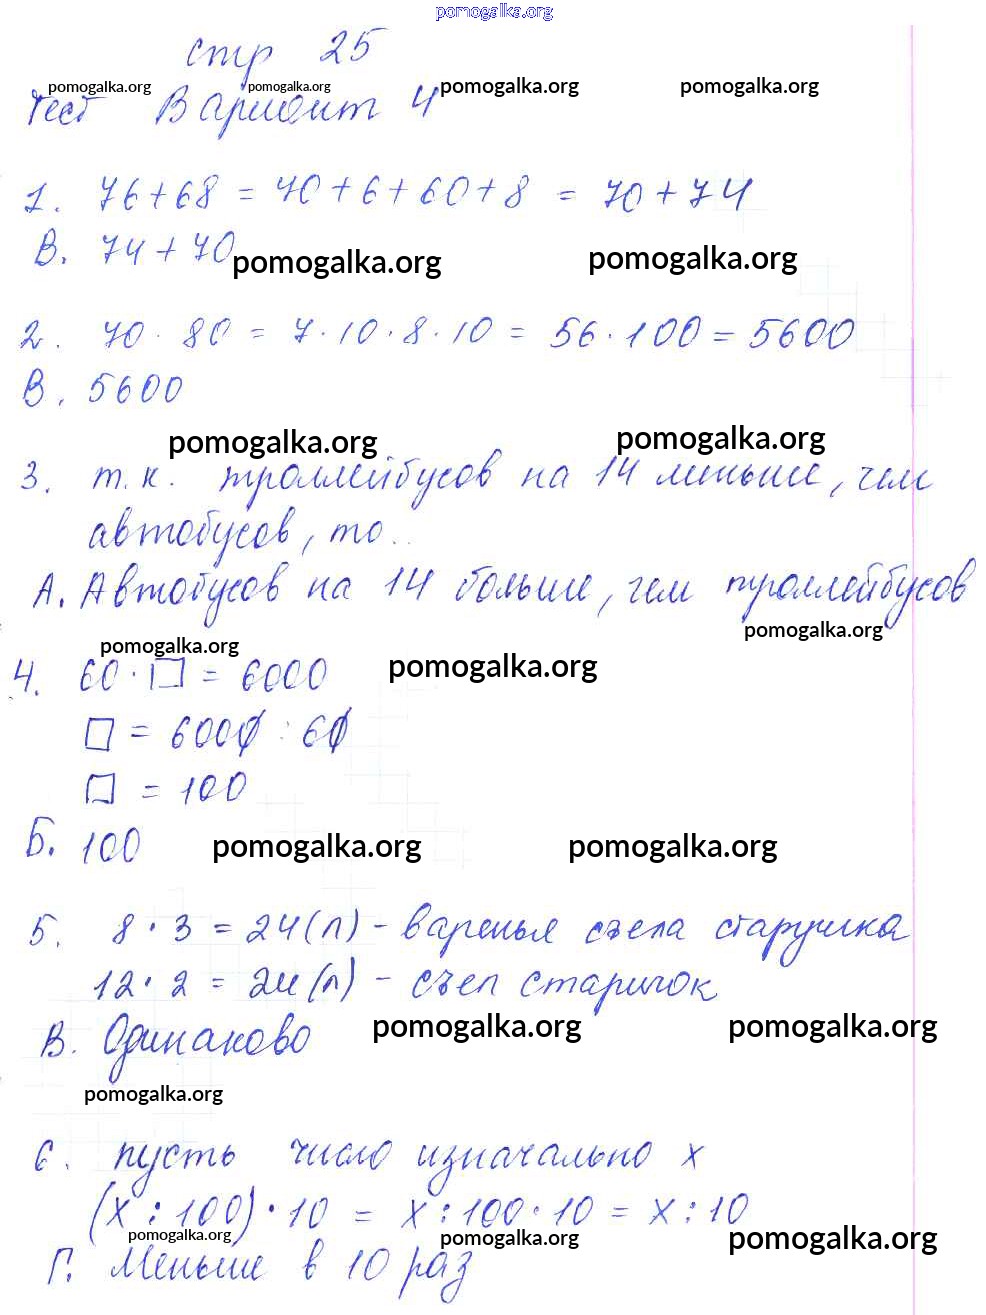 pomogalka.org
стр 25
pomogalka.org pomogalka.org pomogalka.org pomogalka.org
тест Вариант 4
1. 76+68 = 70+6+60+8 = 70+74
В. 74+70
pomogalka.org pomogalka.org
2. 70·80 = 7·10·8·10 = 56·100 = 5600
В. 5600
pomogalka.org pomogalka.org
3. т.к. троллейбусов на 14 меньше, чем
автобусов, то..
А. Автобусов на 14 больше, чем троллейбусов
pomogalka.org
pomogalka.org pomogalka.org
4. 60·□ = 6000
□ = 6000 : 60
□ = 100
Б. 100
pomogalka.org pomogalka.org
5. 8·3 = 24(л) - варенья съела старушка
12·2 = 24(л) - съел старичок
В. Одинаково
pomogalka.org pomogalka.org
pomogalka.org
6. пусть число изначально х
(х:100)·10 = х:100·10 = х:10
pomogalka.org pomogalka.org pomogalka.org
Г. Меньше в 10 раз